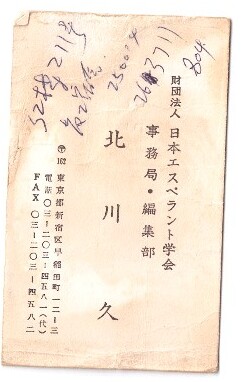 804
財団法人 日本エスペラント学会
事務局・編集部
北川 久
32楼211号
〒162 東京都新宿区早稲田町一二―三
電話〇三―二〇三―四五八一(代)
FAX 〇三―二〇三―四五八二